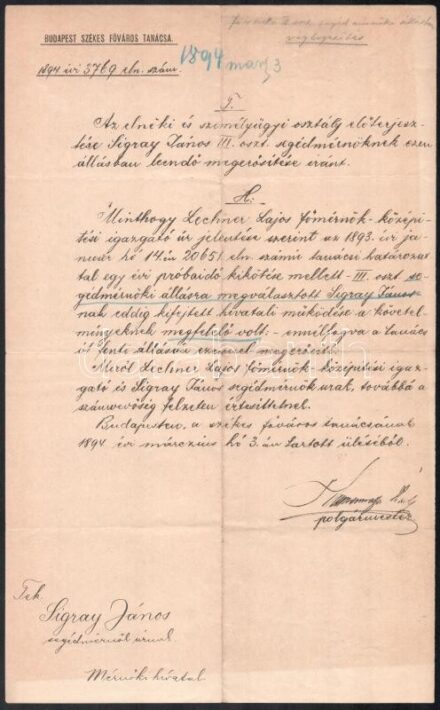 BUDAPEST SZÉKES FŐVÁROS TANÁCSA.
1894 évi 3769 eln. szám.
1894 marz 3
T.
Az elnöki és személyügyi osztály előterjesz-
tése Sigray János III. oszt. segédmérnöknek ezen
állásban leendő megerősítése iránt.
H.
Minthogy Lechner Lajos főmérnök-középí-
tési igazgató úr jelentése szerint az 1893. évi ja-
nuár hó 14-én 2065/ eln. számú tanácsi határozat-
tal egy évi próbaidő kikötése mellett III. oszt. se-
gédmérnöki állásra megválasztott Sigray János-
nak eddig kifejtett hivatali működése a követel-
ményeknek megfelelő volt: ennélfogva a tanács
őt fenti állásában ezennel megerősíti.
Miről Lechner Lajos főmérnök középítési igaz-
gató és Sigray János segédmérnök urak, továbbá a
számvevőség felzeten értesíttetnek.
Budapesten, a székes főváros tanácsának
1894 évi márczius hó 3.-án tartott üléséből.
polgármester
Tek.
Sigray János
segédmérnök úrnak
Mérnöki hivatal